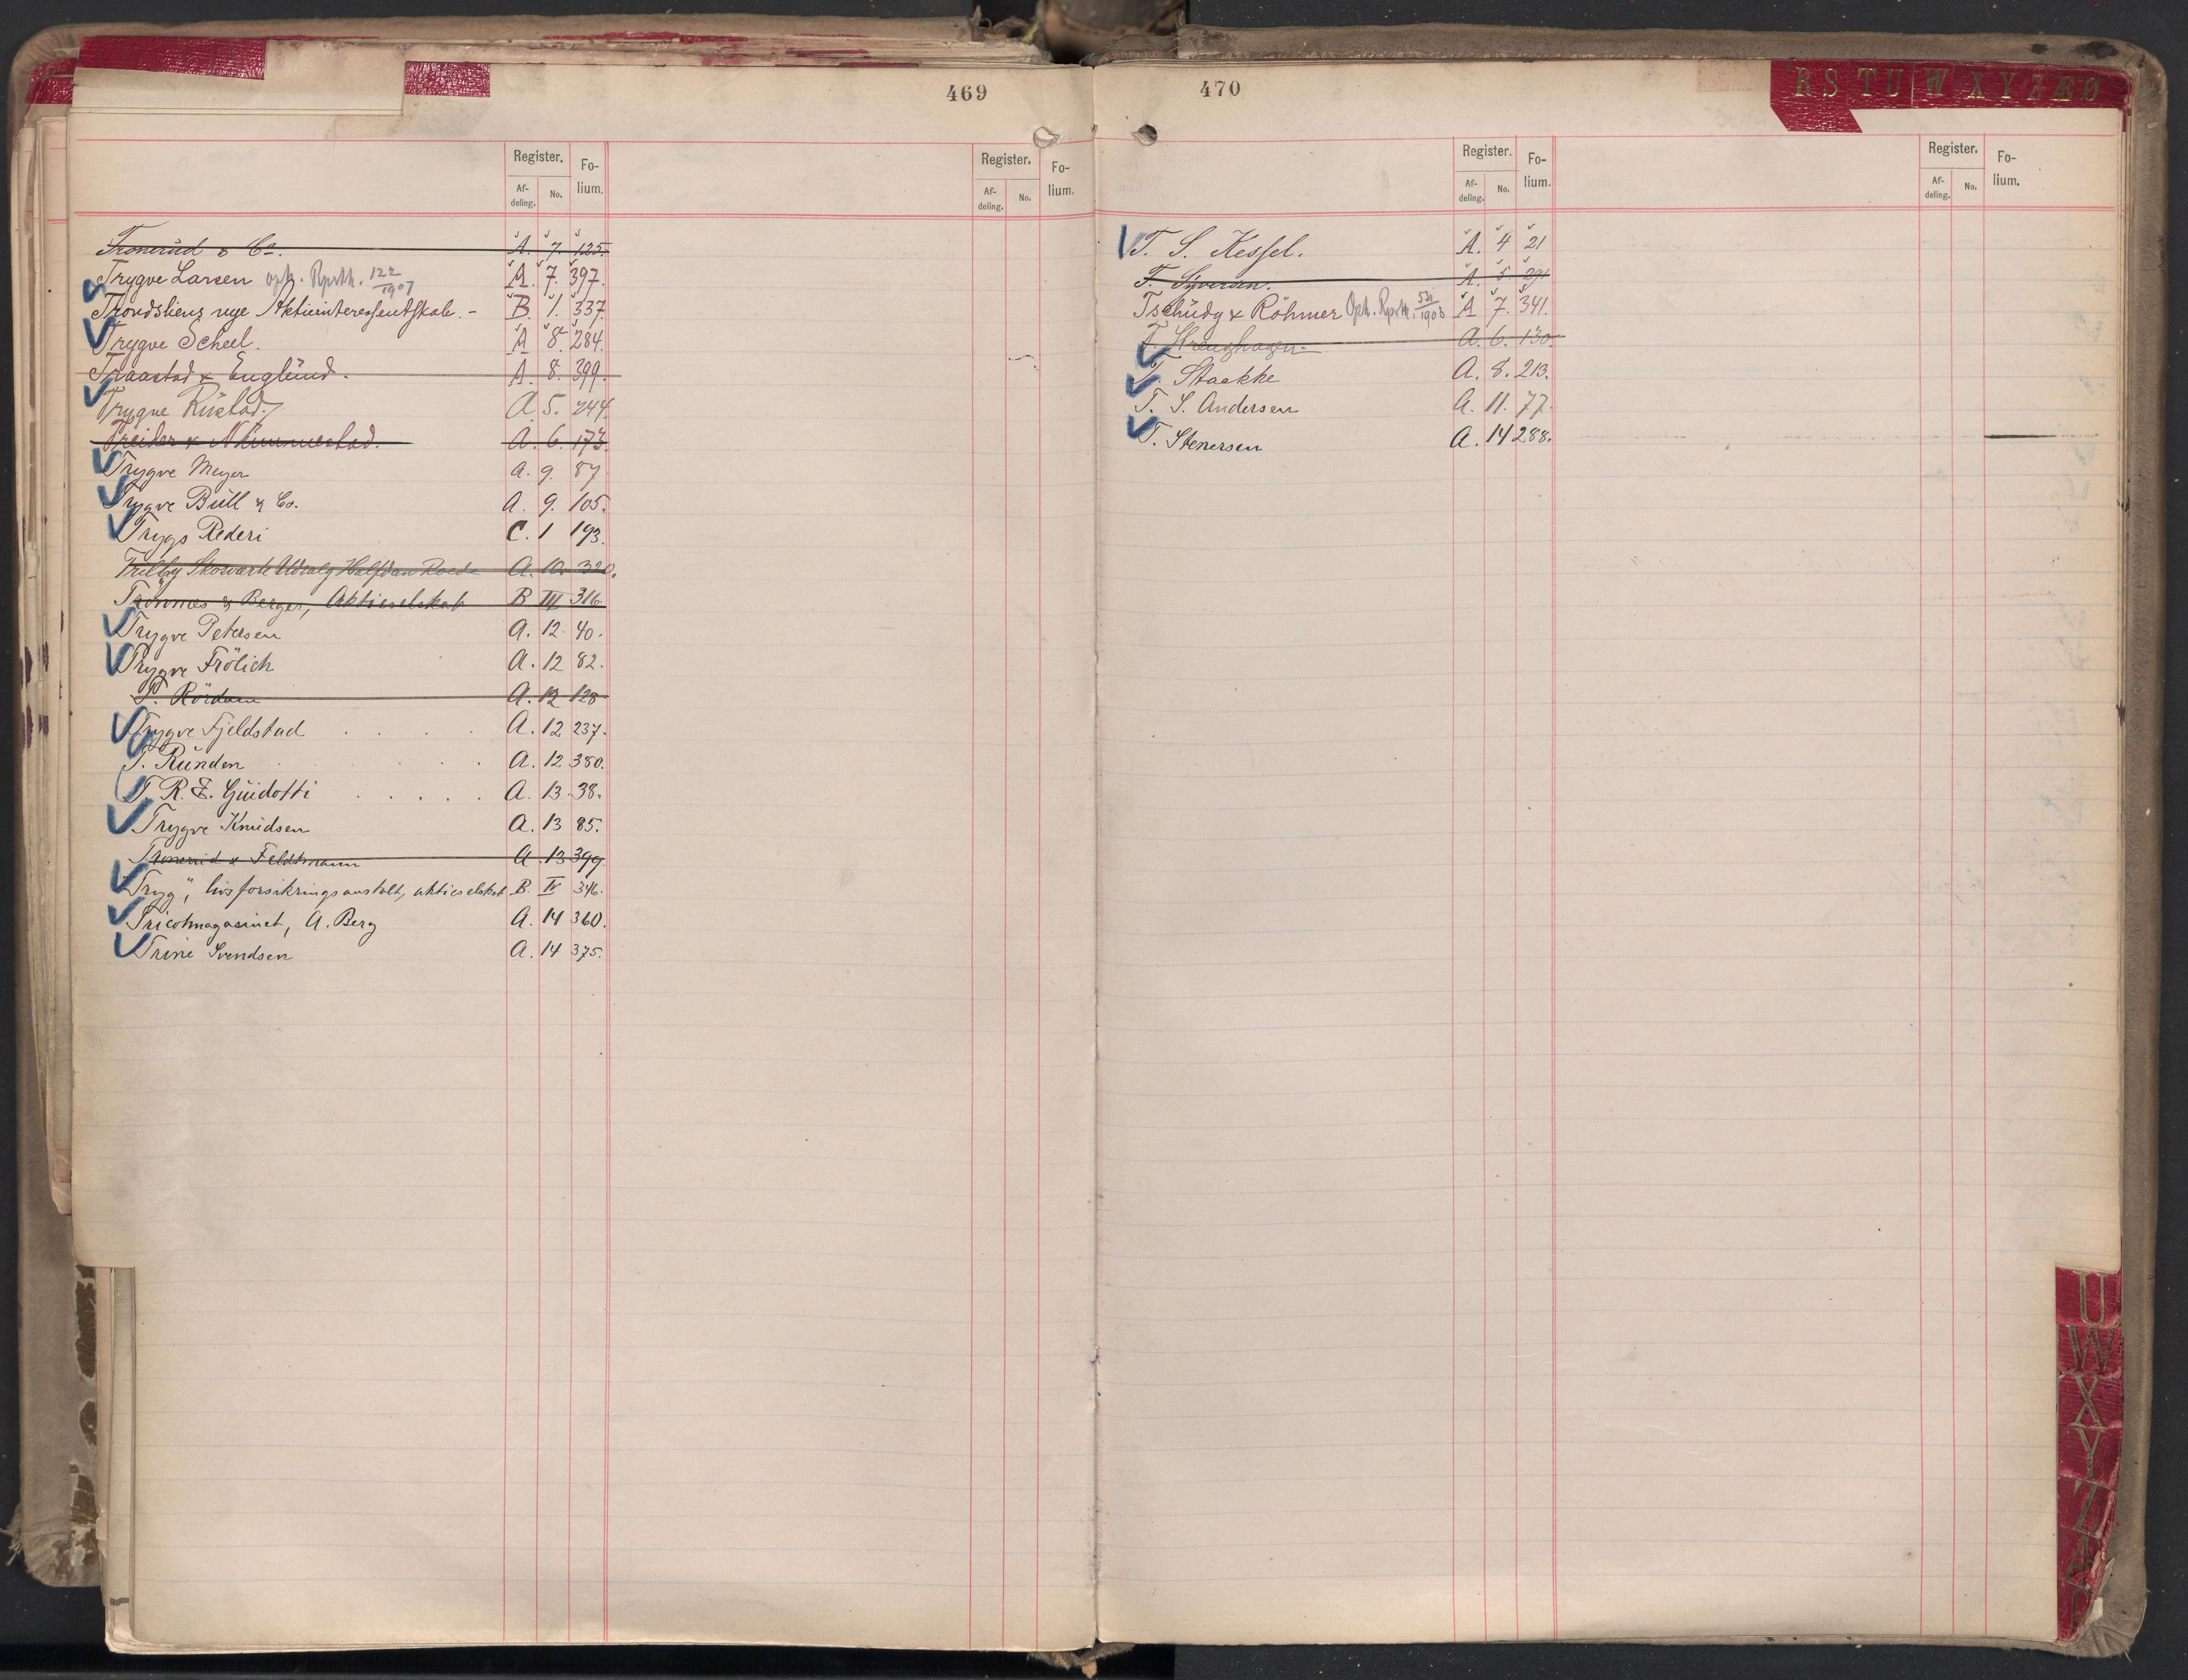 469
Register. Fo-lium. Register. Fo-lium.
Af-deling. No. Af-deling. No.
Tronerud & Co. A. 7. 125.
Trygve Larsen oph. Rprth. 122/1907 A. 7. 397.
Trondsliens nye Aktieinteressentskab. - B. 1. 337
Trygve Scheel. A 8. 284.
Traastad & Englund. A. 8. 399.
Trygve Rustad. A 5. 244.
Treider & A. 6. 173.
Trygve Meyer A. 9. 87
Trygve Bull & Co. A. 9. 105.
Trygs Rederi C. 1 193.
Trilby Skoværks Udsalg Halfdan Roede A. 10. 320.
Trönnes & Berger, Aktieselskab B III 316
Trygve Petersen A. 12. 40.
Trygve Frölich A. 12 82.
T. Rördam A. 12 128
Trygve Fjeldstad . . . . A. 12 237.
T. Runden . . . . A. 12 380.
T. R. Z. Guidotti . . . . . A. 13. 38.
Trygve Knudsen A. 13 85.
Tronerud & Feldtmann A. 13 399.
"Tryg", livsforsikringsanstalt, aktieselskab B. IV 346.
Tricotmagasinet, A. Berg A. 14 360.
Trine Svendsen A. 14 375.
470
R S T U W X Y Z Æ Ø
Register. Fo-lium. Register. Fo-lium.
Af-deling. No. Af-deling. No.
T. S. Kessel. A. 4 21
T. Syversen. A. 5
Tschudy & Röhmer Oph. Rprth. A 7. 341.
T. A. 6. 130.
T. Staakke A. 8. 213.
T. S. Andersen A. 11. 77.
T. Stenersen A. 14 288.
U
W
X
Y
Z